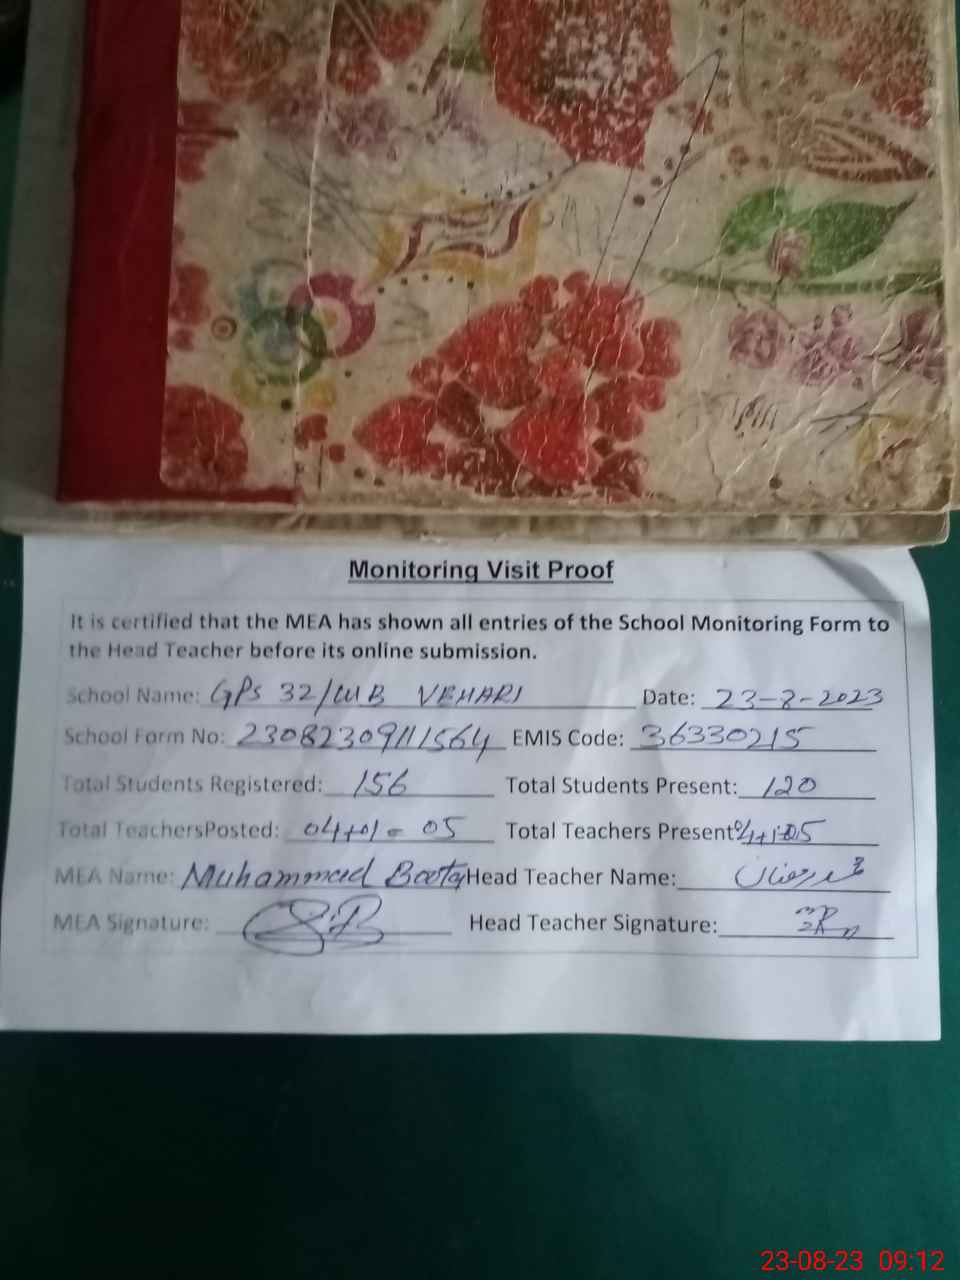 Monitoring Visit Proof
It is certified that the MEA has shown all entries of the School Monitoring Form to
the Head Teacher before its online submission.
School Name: GPS 32/WB VEHARI Date: 23-8-2023
School Form No: 23082309111564 EMIS Code: 36330215
Total Students Registered: 156 Total Students Present: 120
Total TeachersPosted: 04+01= 05 Total Teachers Present:
MEA Name: Muhammad Boota Head Teacher Name: محمد رمضان
MEA Signature: Head Teacher Signature:
23-08-23 09:12